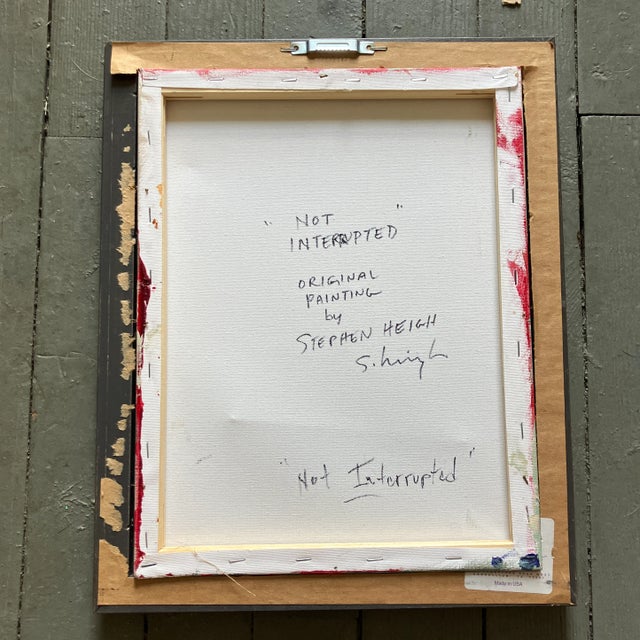 " NOT "
INTERRUPTED
ORIGINAL
PAINTING
by
STEPHEN HEIGH
S. Heigh
"Not Interrupted"
Made in USA